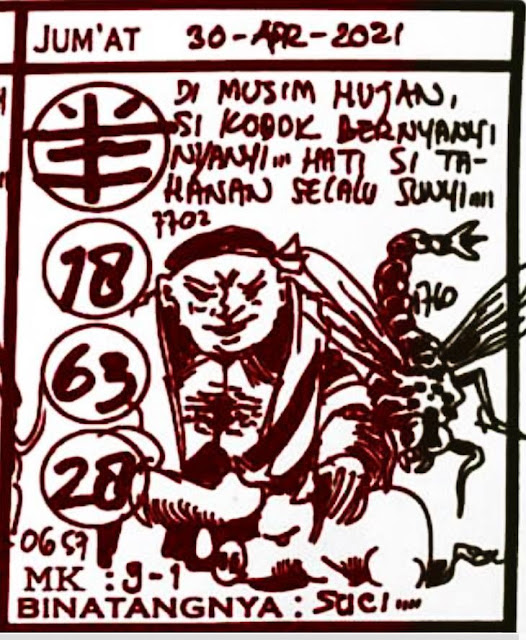 JUM'AT 30-APR-2021
DI MUSIM HUJAN,
SI KODOK BERNYANYI
NYANYI... HATI SI TA-
HANAN SELALU SUNYI....
半
7702
18
1760
63
28
0657
MK : 9-1
BINATANGNYA : SUCI....